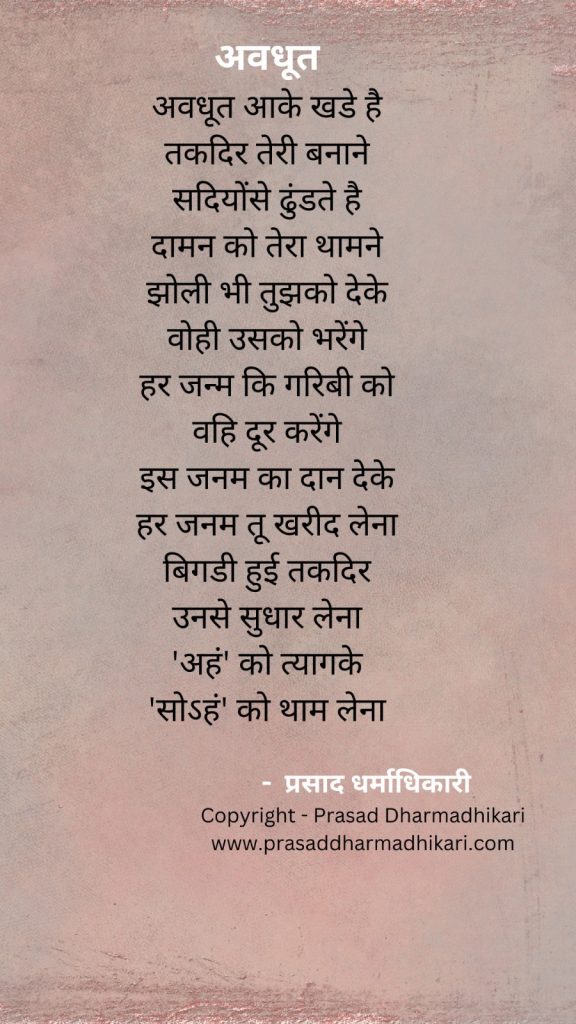 अवधूत
अवधूत आके खडे है
तकदिर तेरी बनाने
सदियोंसे ढुंडते है
दामन को तेरा थामने
झोली भी तुझको देके
वोही उसको भरेंगे
हर जन्म कि गरिबी को
वहि दूर करेंगे
इस जनम का दान देके
हर जनम तू खरीद लेना
बिगडी हुई तकदिर
उनसे सुधार लेना
'अहं' को त्यागके
'सोऽहं' को थाम लेना
- प्रसाद धर्माधिकारी
Copyright - Prasad Dharmadhikari
www.prasaddharmadhikari.com